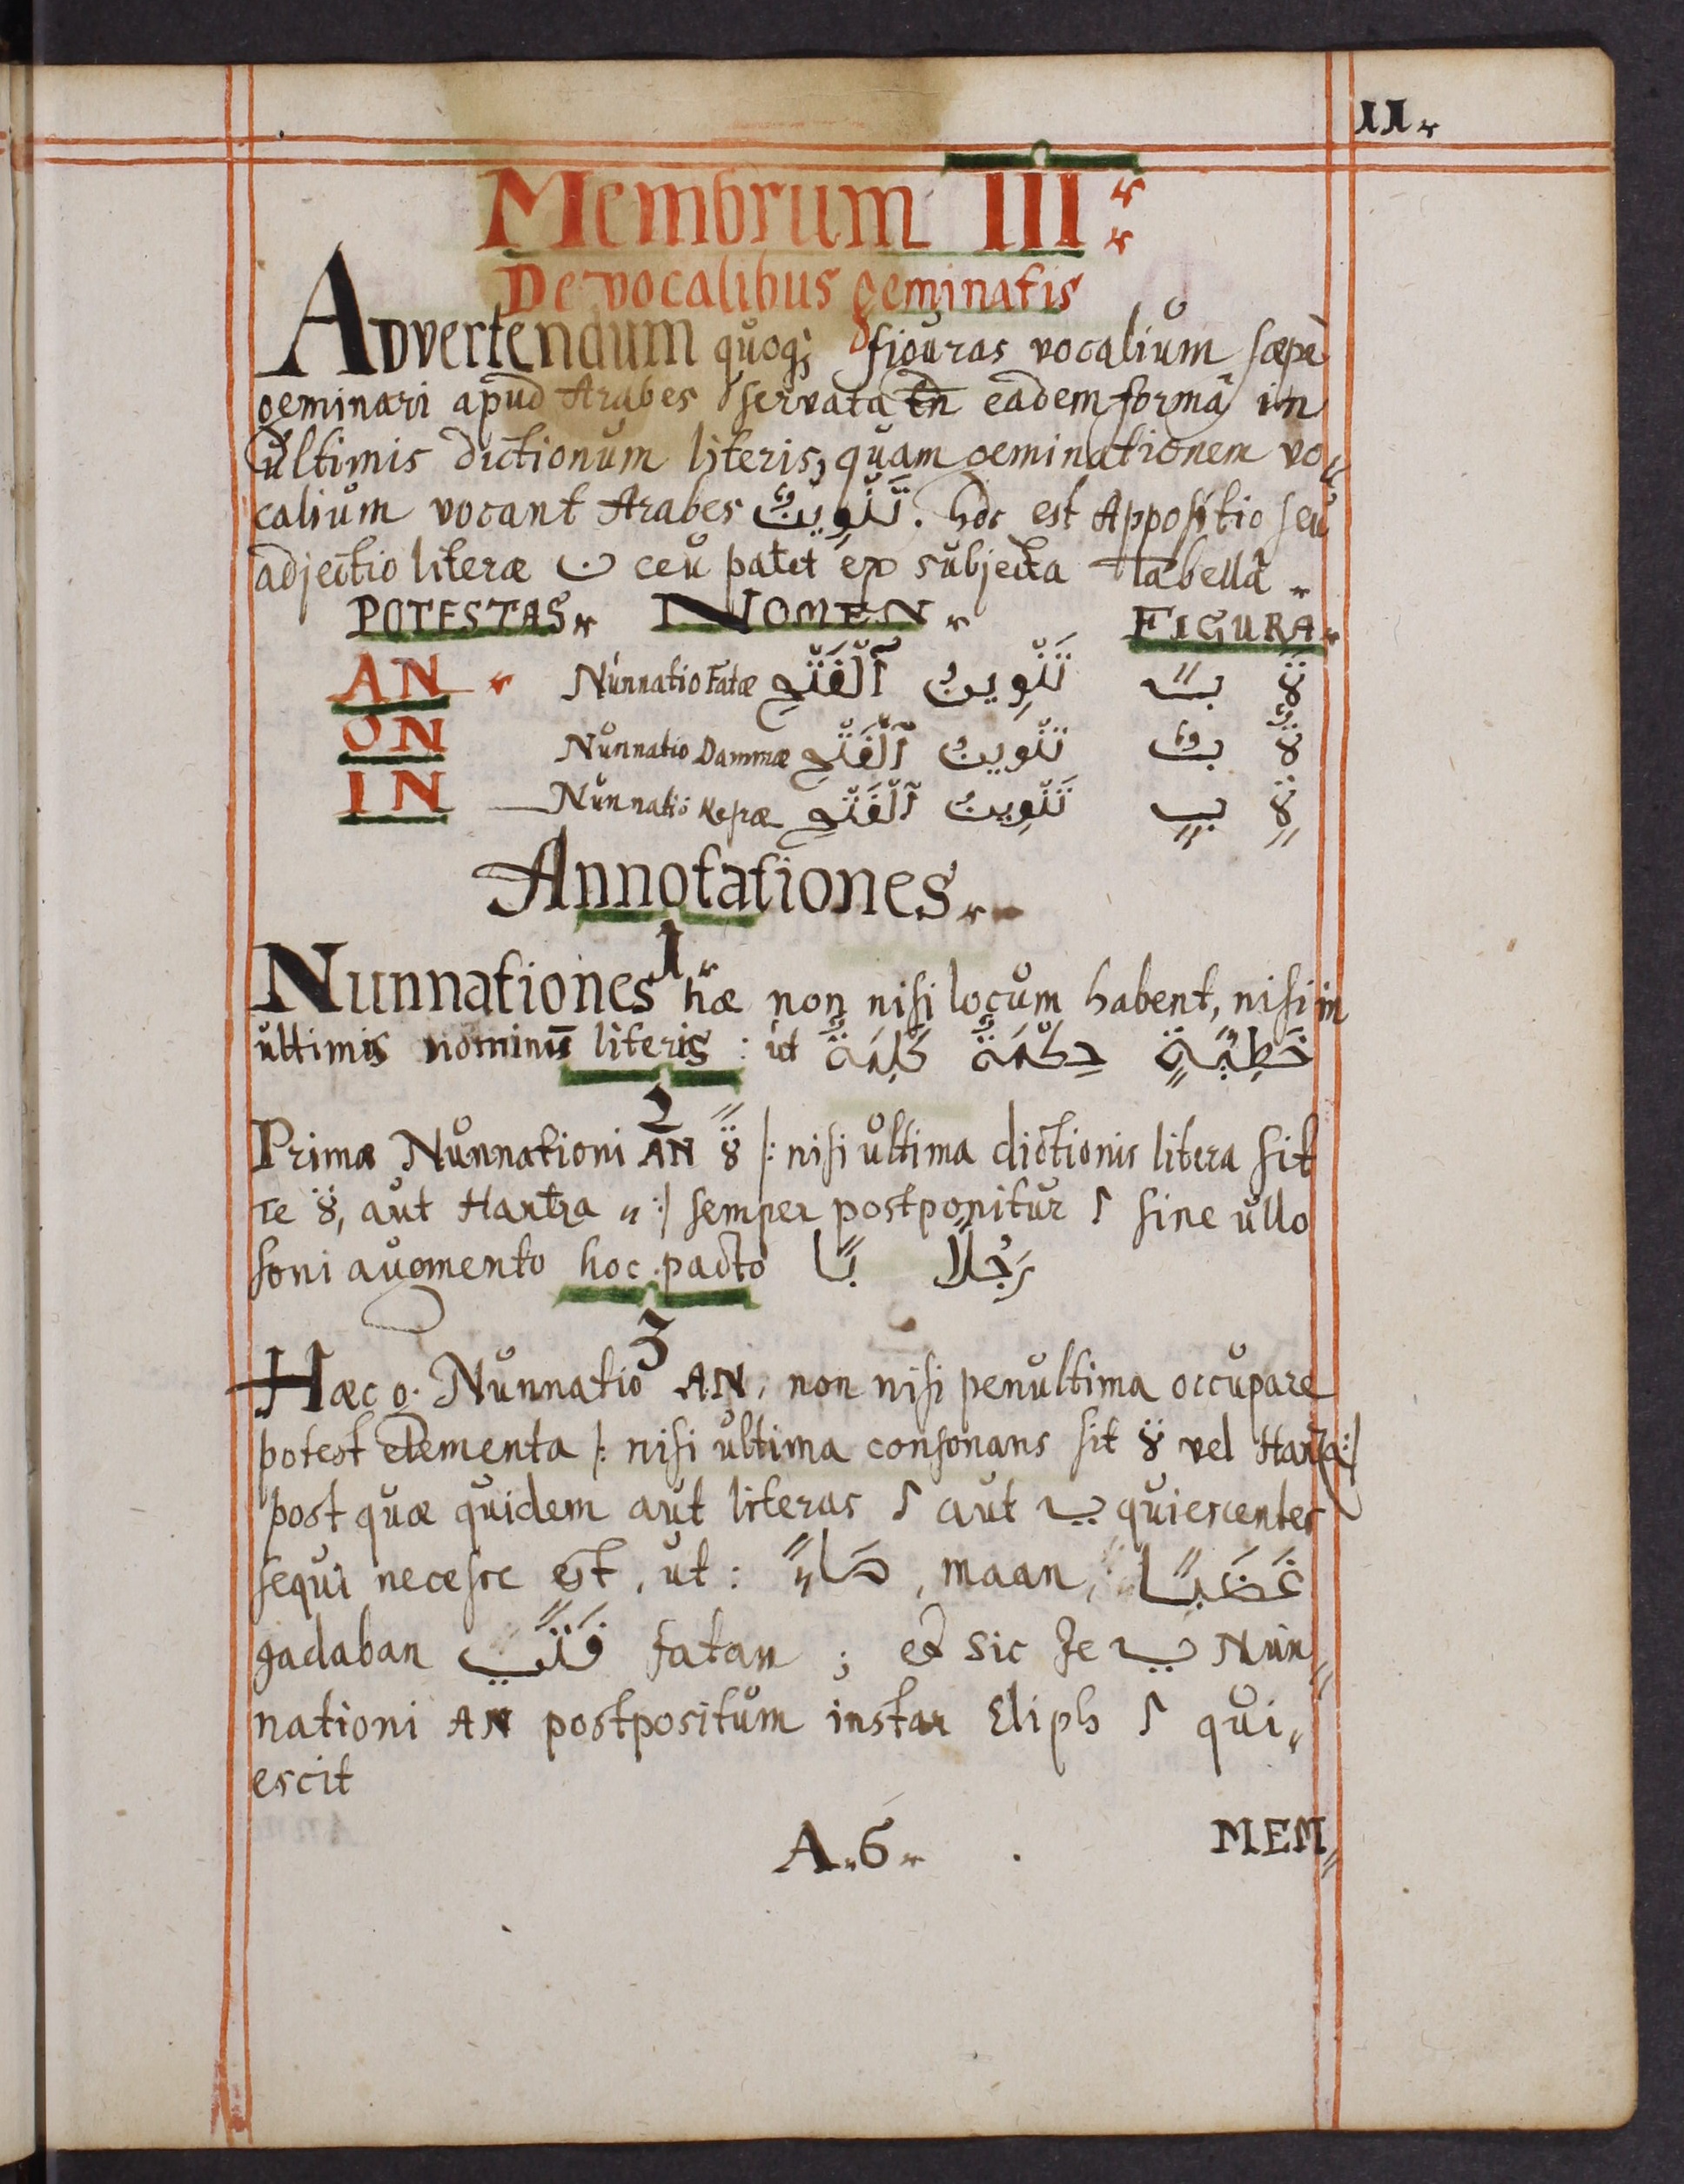 11.
Membrum III:
De vocalibus geminatis
Advertendum quoq; figuras vocalium sæpè
geminari apud Arabes servata tn eadem formâ in
ultimis dictionum literis, quam geminationem vo„
calium vocant Arabes تَنْوِينٌ. hoc est Appositio seu
adjectio literæ ن ceu patet ex subjecta Tabellâ.
POTESTAS. NOMEN. FIGURA.
AN. Nunnatio Fatæ تَنْوِينُ ٱلْفَتْحِ بً ةً
ON Nunnatio Dammæ تَنْوِينُ ٱلْفَتْحِ بٌ ةٌ
IN Nunnatio Kesræ تَنْوِينُ ٱلْفَتْحِ بٍ ةٍ
Annotationes.
1.
Nunnationes hæ non nisi locum habent, nisi in
ultimis nominū literis: ut خَطِيَّةٍ حِكْمَةٌ كَلِمَةٌ
2
Primæ Nunnationi AN ةً /: nisi ultima dictionis litera sit
te ة, aut Hamza ء :/ semper postponitur ا sine ullo
soni augmento hoc pacto بًا رَجُلًا
3
Hæc o. Nunnatio AN, non nisi penultima occupare
potest elementa /: nisi ultima consonans sit ة vel Hamza :/
post quæ quidem aut literas ا aut ي quiescentes
sequi necesse est, ut: مَاءً, maan, غَضَبًا
gadaban فَتًي fatan; et sic Je ي Nun„
nationi AN postpositum instar Eliph ا qui„
escit
A.6. MEM„